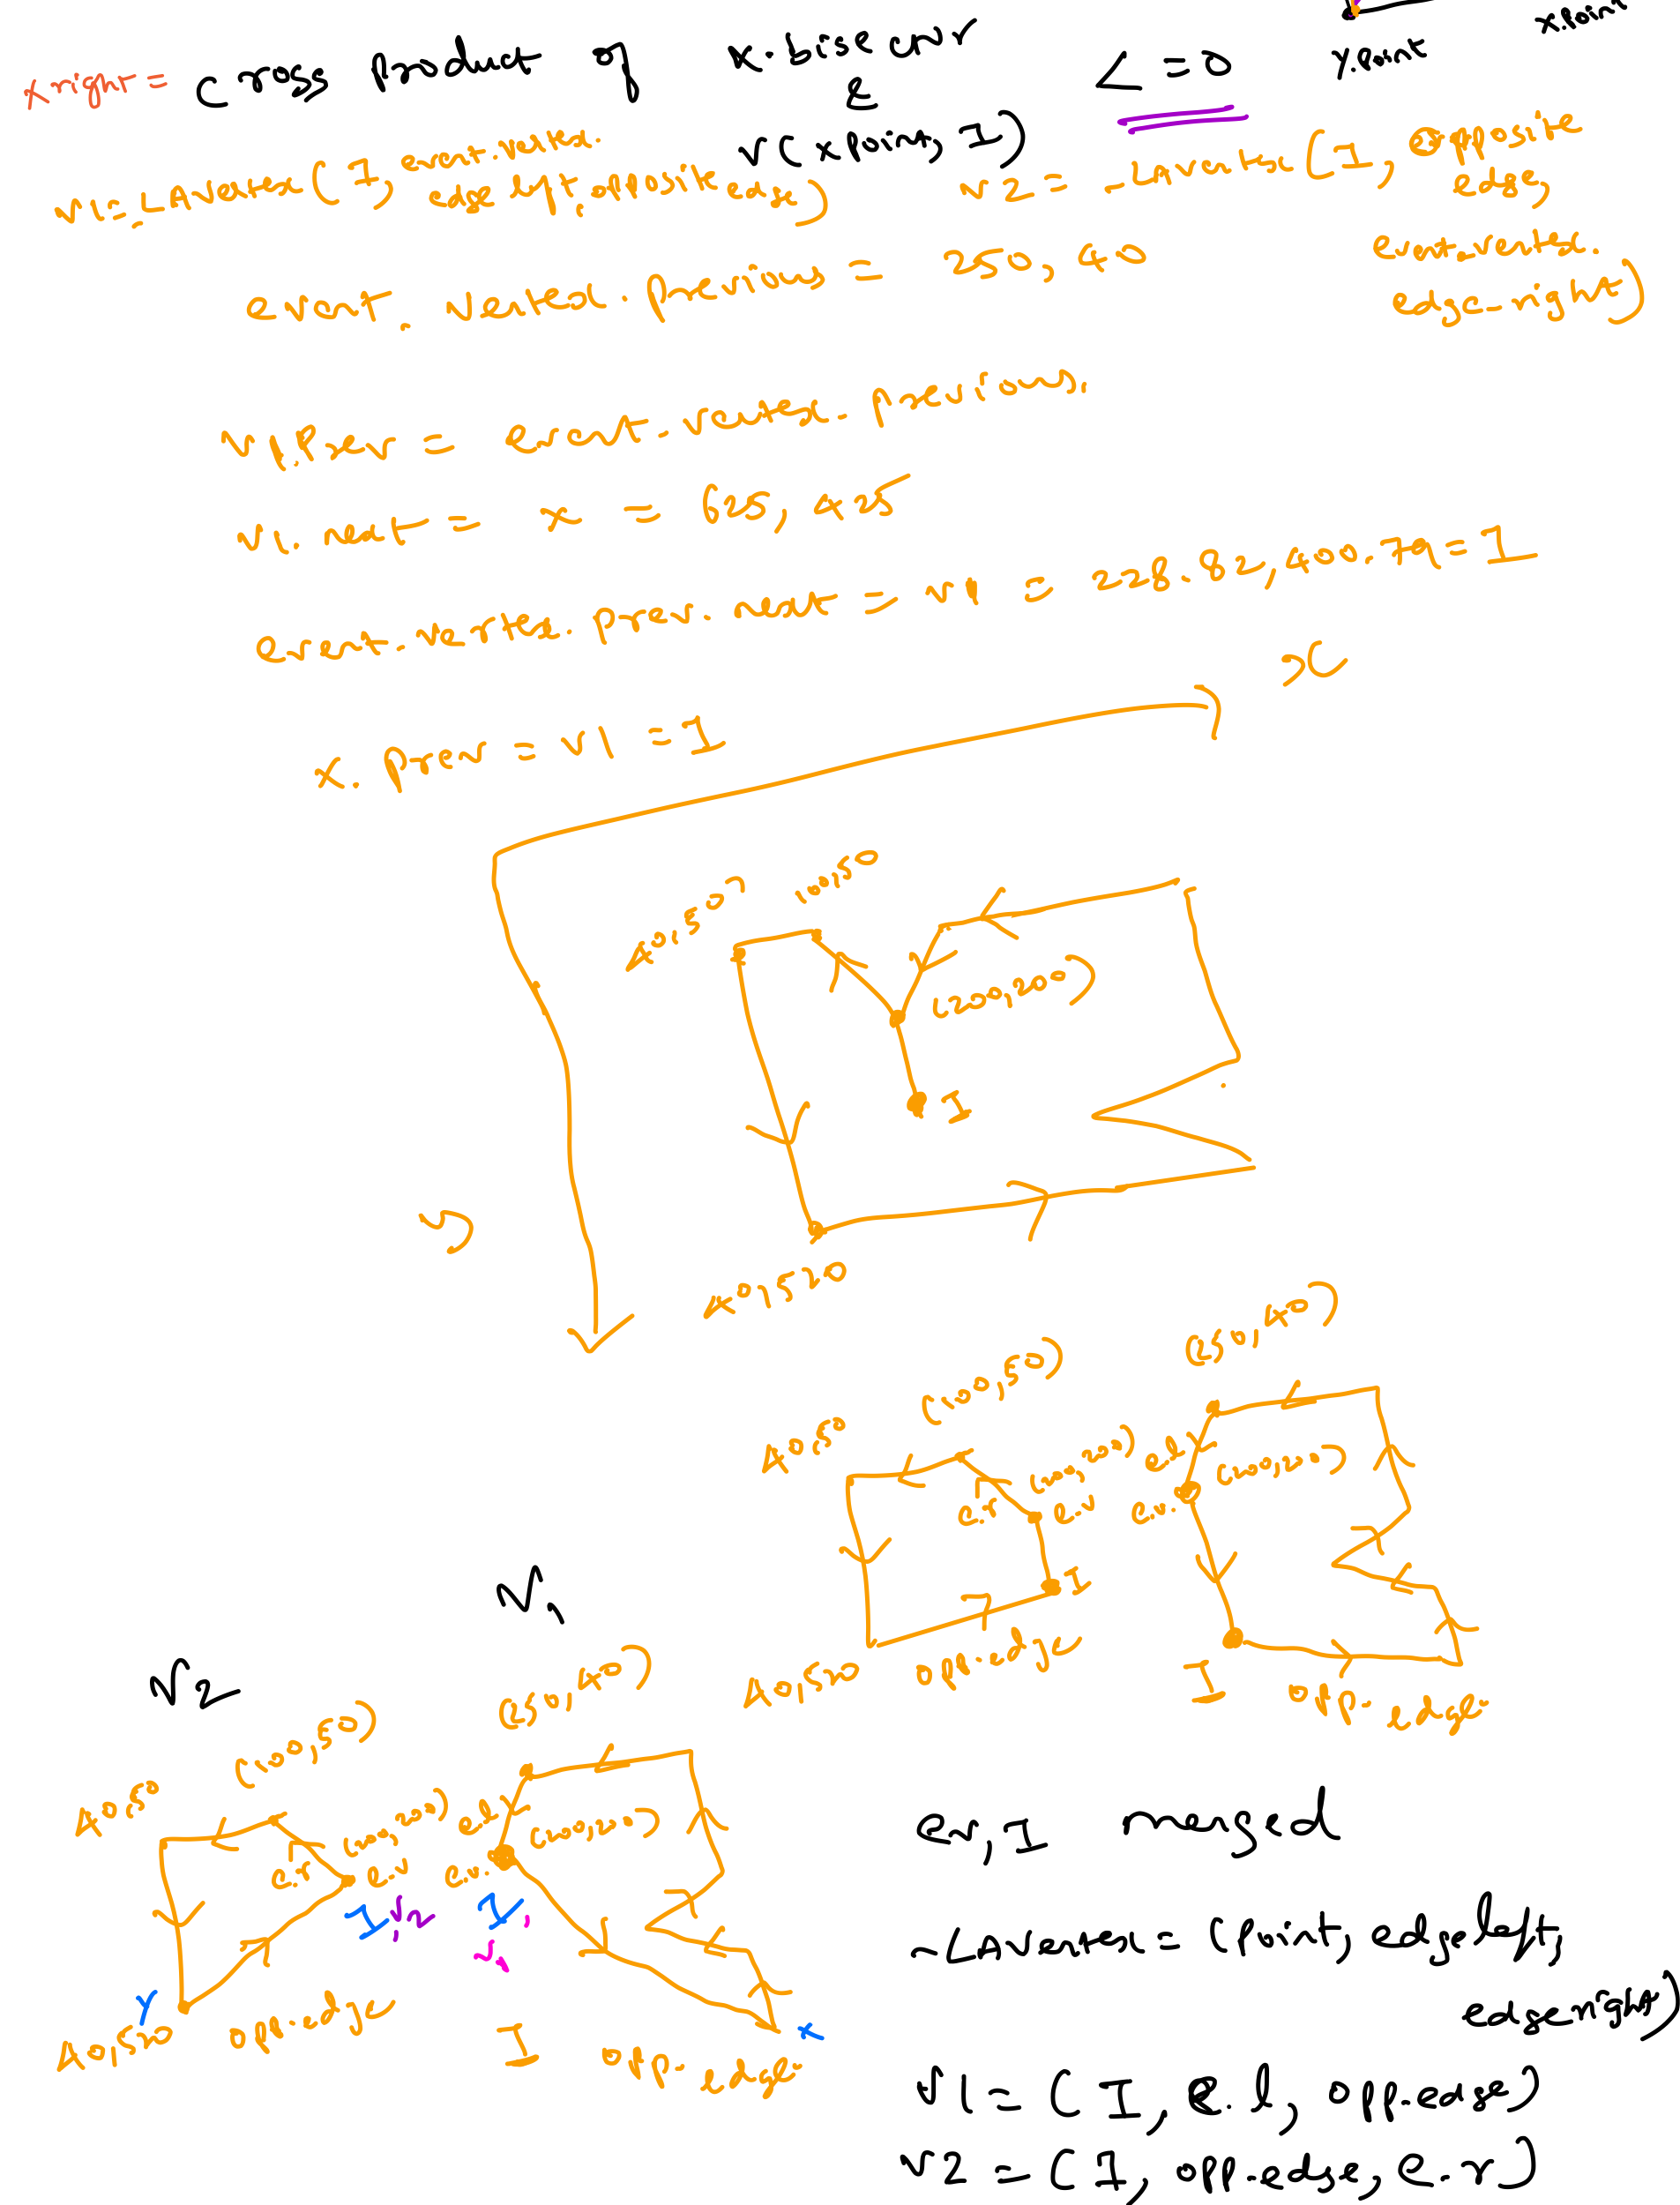 xright = cross product of x.bisector <=0 y.point x.point
&
v(xpoint, I)
v1 = _LAVertex(I, event.vertex.
edge left, opposite edge)
v2 = _LAVertex(I, opposite
edge,
event.vertex.
edge_right)
event.vertex.previous = 250, 40
v1.Prev = event.vertex.previous.
v1.next = x = 625, 425
event.vertex.prev.next = v1 = 228.82, 400.79 = I
x.prev = v1 = I
x
40,50
100,50
(200,200)
I
y
40,520
(250,40)
(100,50)
40,50
(200,200)
e.l
(200,200)
e.r
e.v
e.v.
I
40,520
opp.edge
I
opp.edge
V1
V2
(250,40)
(100,50)
40,50
(200,200)
e.l
(200,200)
e.r
e.v
e.v.
I, v2
I,
v1
Y
40,520
opp.edge
I
opp.edge
x
ev, I merged
_LAVertex = (point, edgeleft,
edgeright)
V1 = (I, e.l, opp.edge)
V2 = (I, opp.edge, e.r)